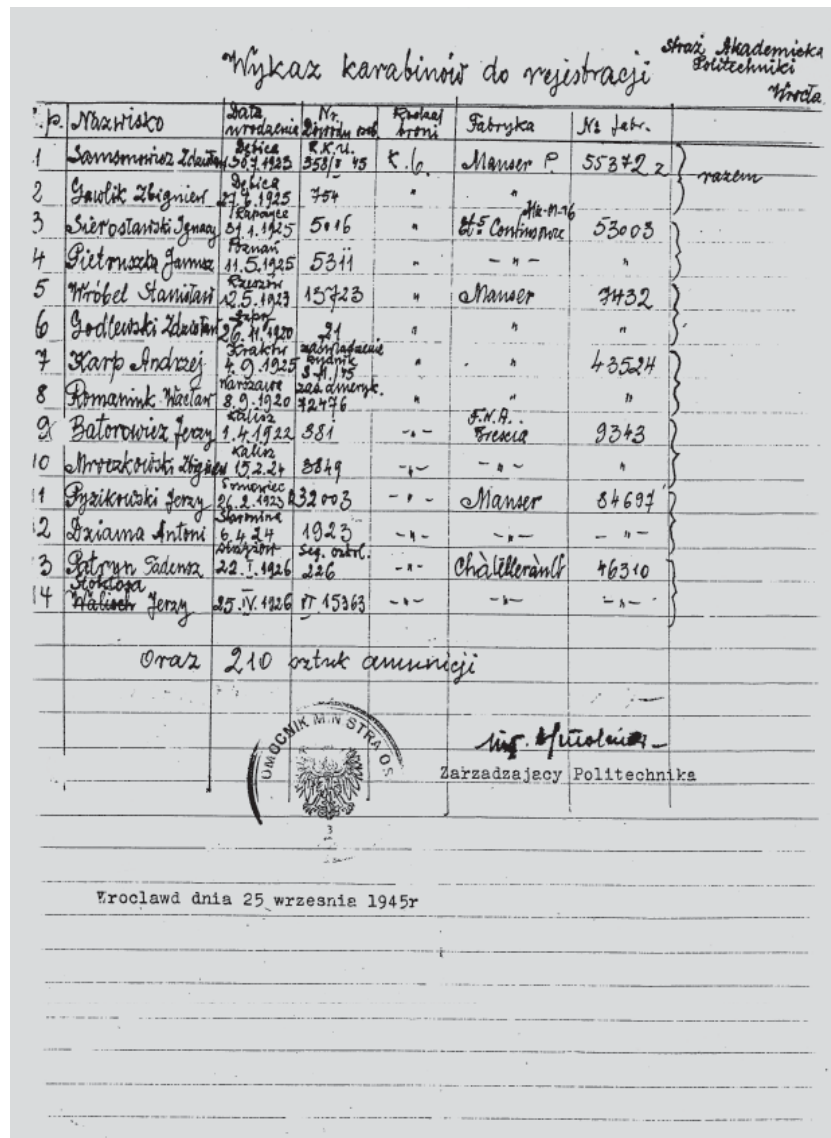 Straż Akademicka
Politechniki
Wrocła.
Wykaz karabinów do rejestracji
.p. Nazwisko Data urodzenia Nr. Dowodu osob. Rodzaj broni Fabryka № fabr.
1 Samsonowicz Zdzisław Dębica 30.7.1923 R.K.U. 358/ 45 K.b. Manser P. 55372 z razem
2 Gawlik Zbigniew Dębica 754 " "
3 Sierosławski Ignacy 31.1.1925 5016 " Mle-M-16 Et⁵ Continsouze 53003
4 Pietruszka Janusz Poznań 11.5.1925 5311 " - " - "
5 Wróbel Stanisław Rzeszów 12.5.1923 13723 " Manser 7432
6 Godlewski Zdzisław 26.11.1920 21 " " "
7 Karp Andrzej Kraków 4.9.1925 zaświadczenie " " 43524
8 Romaniuk Wacław Warszawa 8.9.1920 zaś. ameryk. 72476 " " "
9 Batorowicz Jerzy Kalisz 1.4.1922 381 -"- F.N.A. Brescia 9343
10 Mroczkowski Zbigniew Kalisz 15.2.24 3849 -"- - " - "
11 Pyzikowski Jerzy Sosnowiec 26.2.1923 32003 - " - Manser 84697
12 Dziama Antoni Słonimna 6.4.24 1923 -"- -"- - " -
13 Patryn Tadeusz 22.I.1926 226 -"- Chàtellerànlt 46310
14 Stokłosa Walisch Jerzy 25.IV.1926 VI 15363 -"- -"- -"-
Oraz 210 sztuk amunicji
OMOCNIK MIN STRA OŚ
3
Zarzadzajacy Politechnika
Wroclawd dnia 25 wrzesnia 1945r